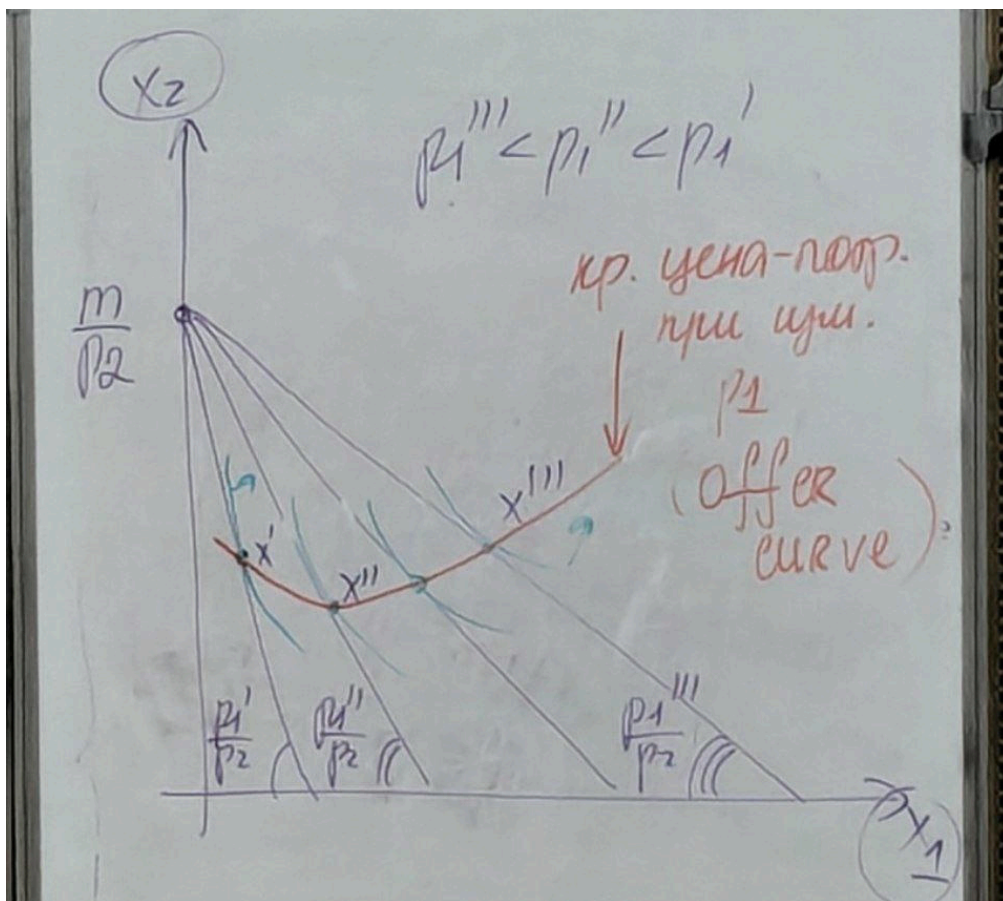 x2
p1''' < p1'' < p1'
кр. цена-потр.
при изм.
p1
(Offer
curve)
m
p2
x'
x''
x'''
p1'
p2
p1''
p2
p1'''
p2
x1